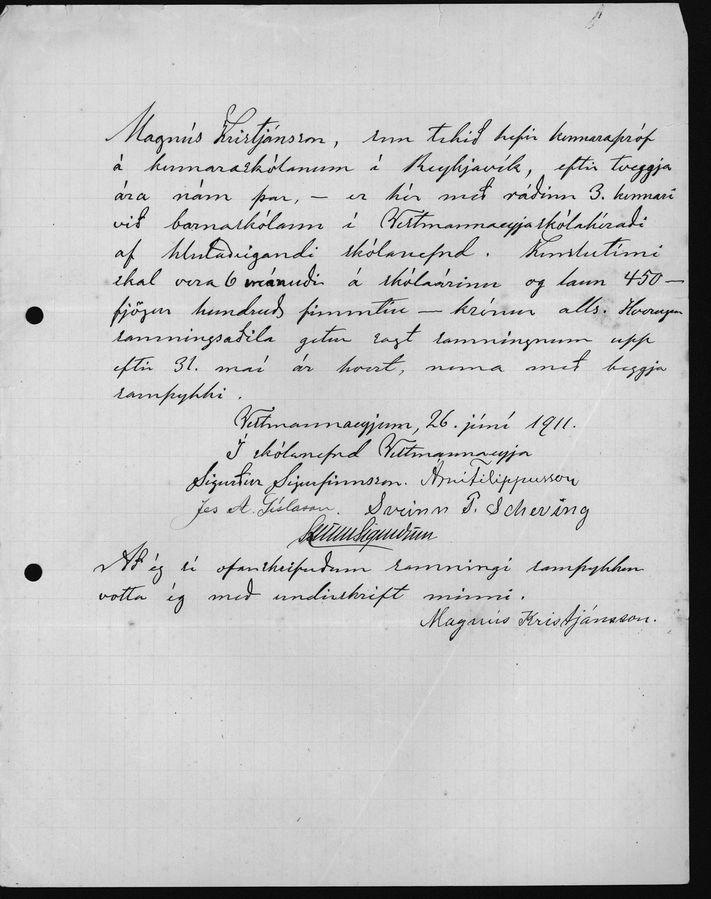 Magnús Kristjánsson, sem tekið hefir kennarapróf
á kennaraskólanum í Reykjavík, eftir tveggja
ára nám þar, — er hér með ráðinn 3. kennari
við barnaskólann í Vestmannaeyjaskólahéraði
af hlutaðeigandi skólanefnd. Kenslutími
skal vera 6 mánuði á skólaárinu og laun 450 —
fjögur hundruð fimmtíu — krónur alls. Hvorugur
samningsaðila getur sagt samningnum upp
eftir 31. maí ár hvert, nema með beggja
samþykki.
Vestmannaeyjum, 26. júní 1911.
Í skólanefnd Vestmannaeyja
Sigurður Sigurfinnsson. Árni Filippusson
Jes A. Gíslason. Sveinn P. Scheving
Að ég sé ofanskrifuðum samningi samþykkur
votta ég með undirskrift minni.
Magnús Kristjánsson.